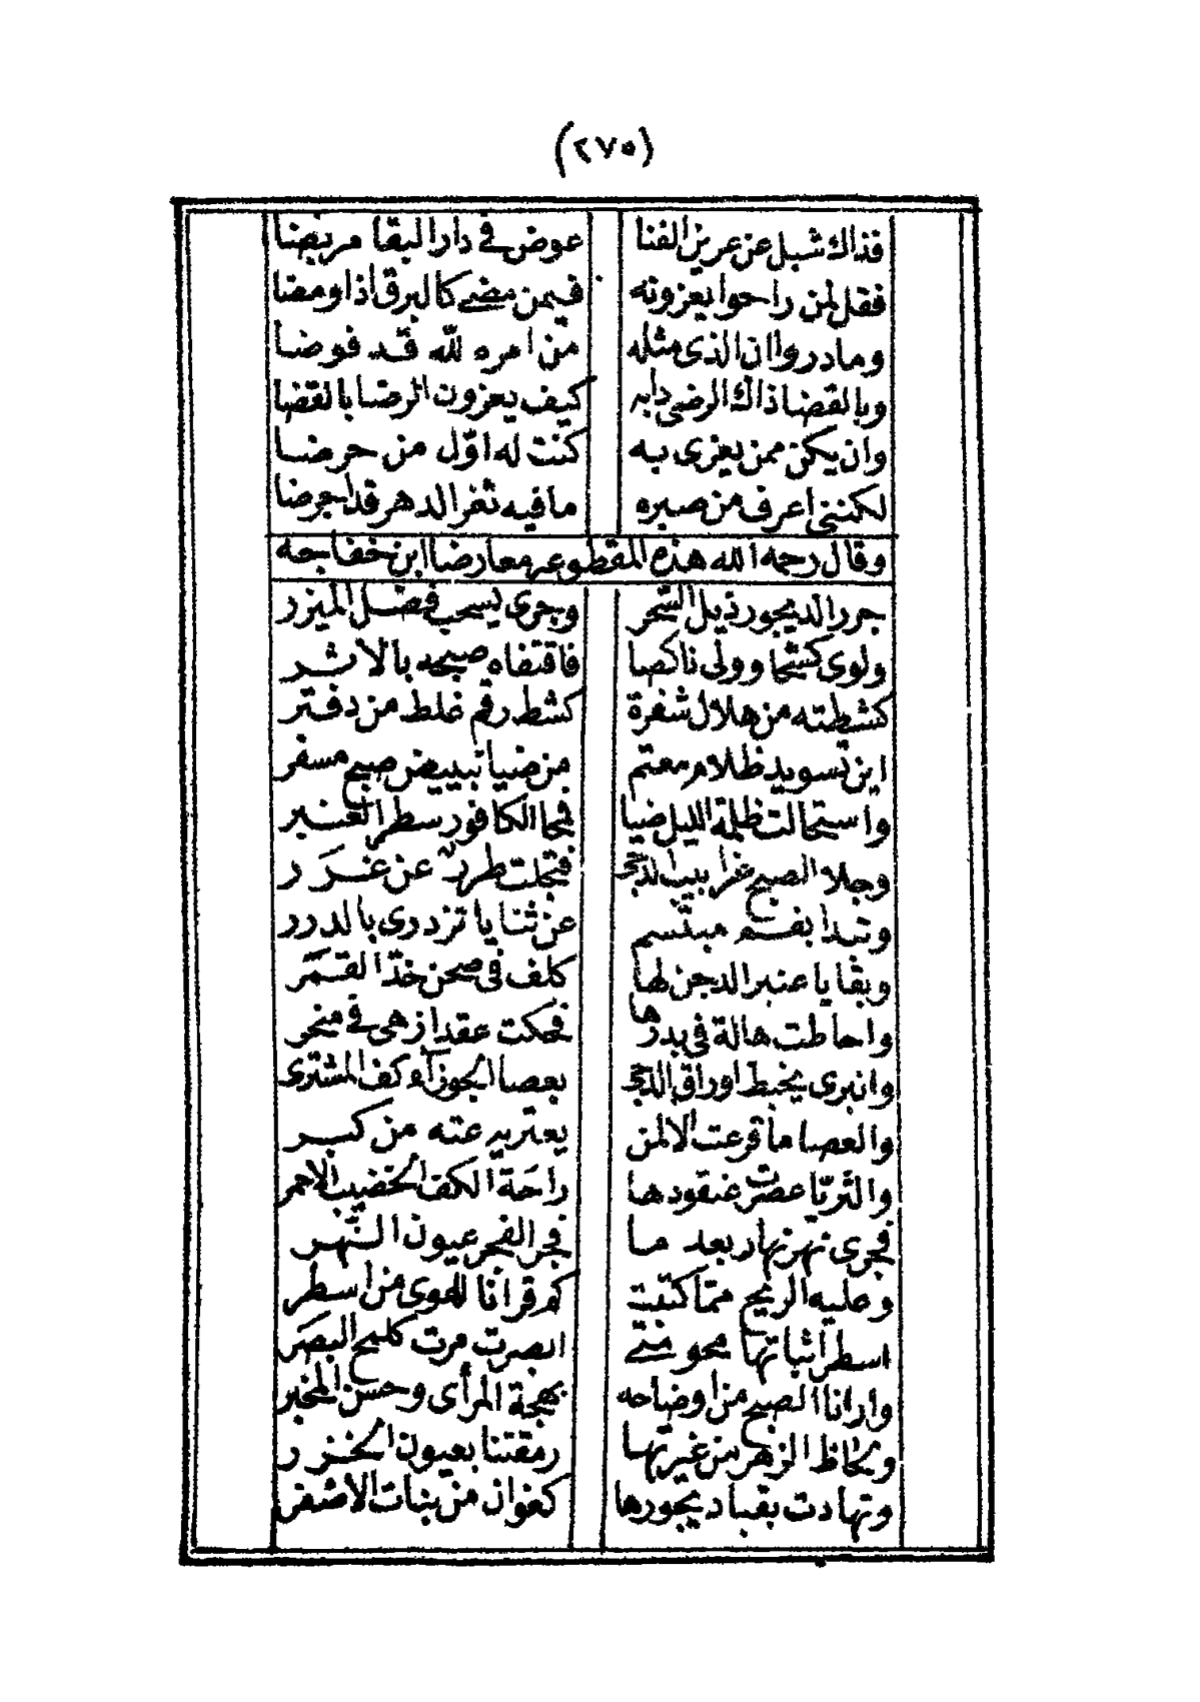 (٢٧٥)
فذاك شبل عن عرين الفنا عوض في دار البقا مربضا
فقل لمن راحوا يعزونه فيمن مضى كالبرق اذا ومضا
وما دروا ان الذى مثله من امره لله قد فوضا
وبالقضا ذاك الرضى دابه كيف يعزون الرضا بالقضا
وان يكن ممن يعزى به كنت له اوّل من حرضا
لكننى اعرف من صبره ما فيه ثغر الدهر قد اجرضا
وقال رحمه الله هذه المقطوعه معارضا ابن خفاجه
جرر الديجور ذيل السّحر وجرى يسحب فضل الميزر
ولوى كشحا وولى ناكصا فاقتفاه صبحه بالاثر
كشطته من هلال شفرة كشط رقم غلط من دفتر
اين تسويد ظلام معتم من ضيا تبييض صبح مسفر
واستحالت ظلمة الليل ضيا فمحا الكافور سطر العنبر
وجلا الصبح غرابيب الدّجى فتجلت طرر عن غرر
وتبدا بفم مبتسم عن ثنايا تزدرى بالدرر
وبقايا عنبر الدجن لها كلف فى صحن خدّ القمر
واحاطت هالة فى بدرها فحكت عقدا زهى في منحر
وانبرى يخبط اوراق الدّجى بعصا الجوزآء كف المشترى
والعصا ما قرعت الا لمن يعتريه عته من كبر
والثريّا عصرت عنقودها راحة الكف الخضيب الاحمر
فجرى نهر نهار بعد ما فجر الفجر عيون النّهر
وعليه الريح ممّا كتبت كم قرانا للهوى من اسطر
اسطر اثباتها محو متى ابصرت مرت كلمح البصر
وارانا الصبح من اوضاحه بهجة المرأى وحسن المخبر
ولحاظ الزهر من غيرتها رمقتنا بعيون الخزر
وتهادت بقبا ديجورها كغوان من بنات الاصفر